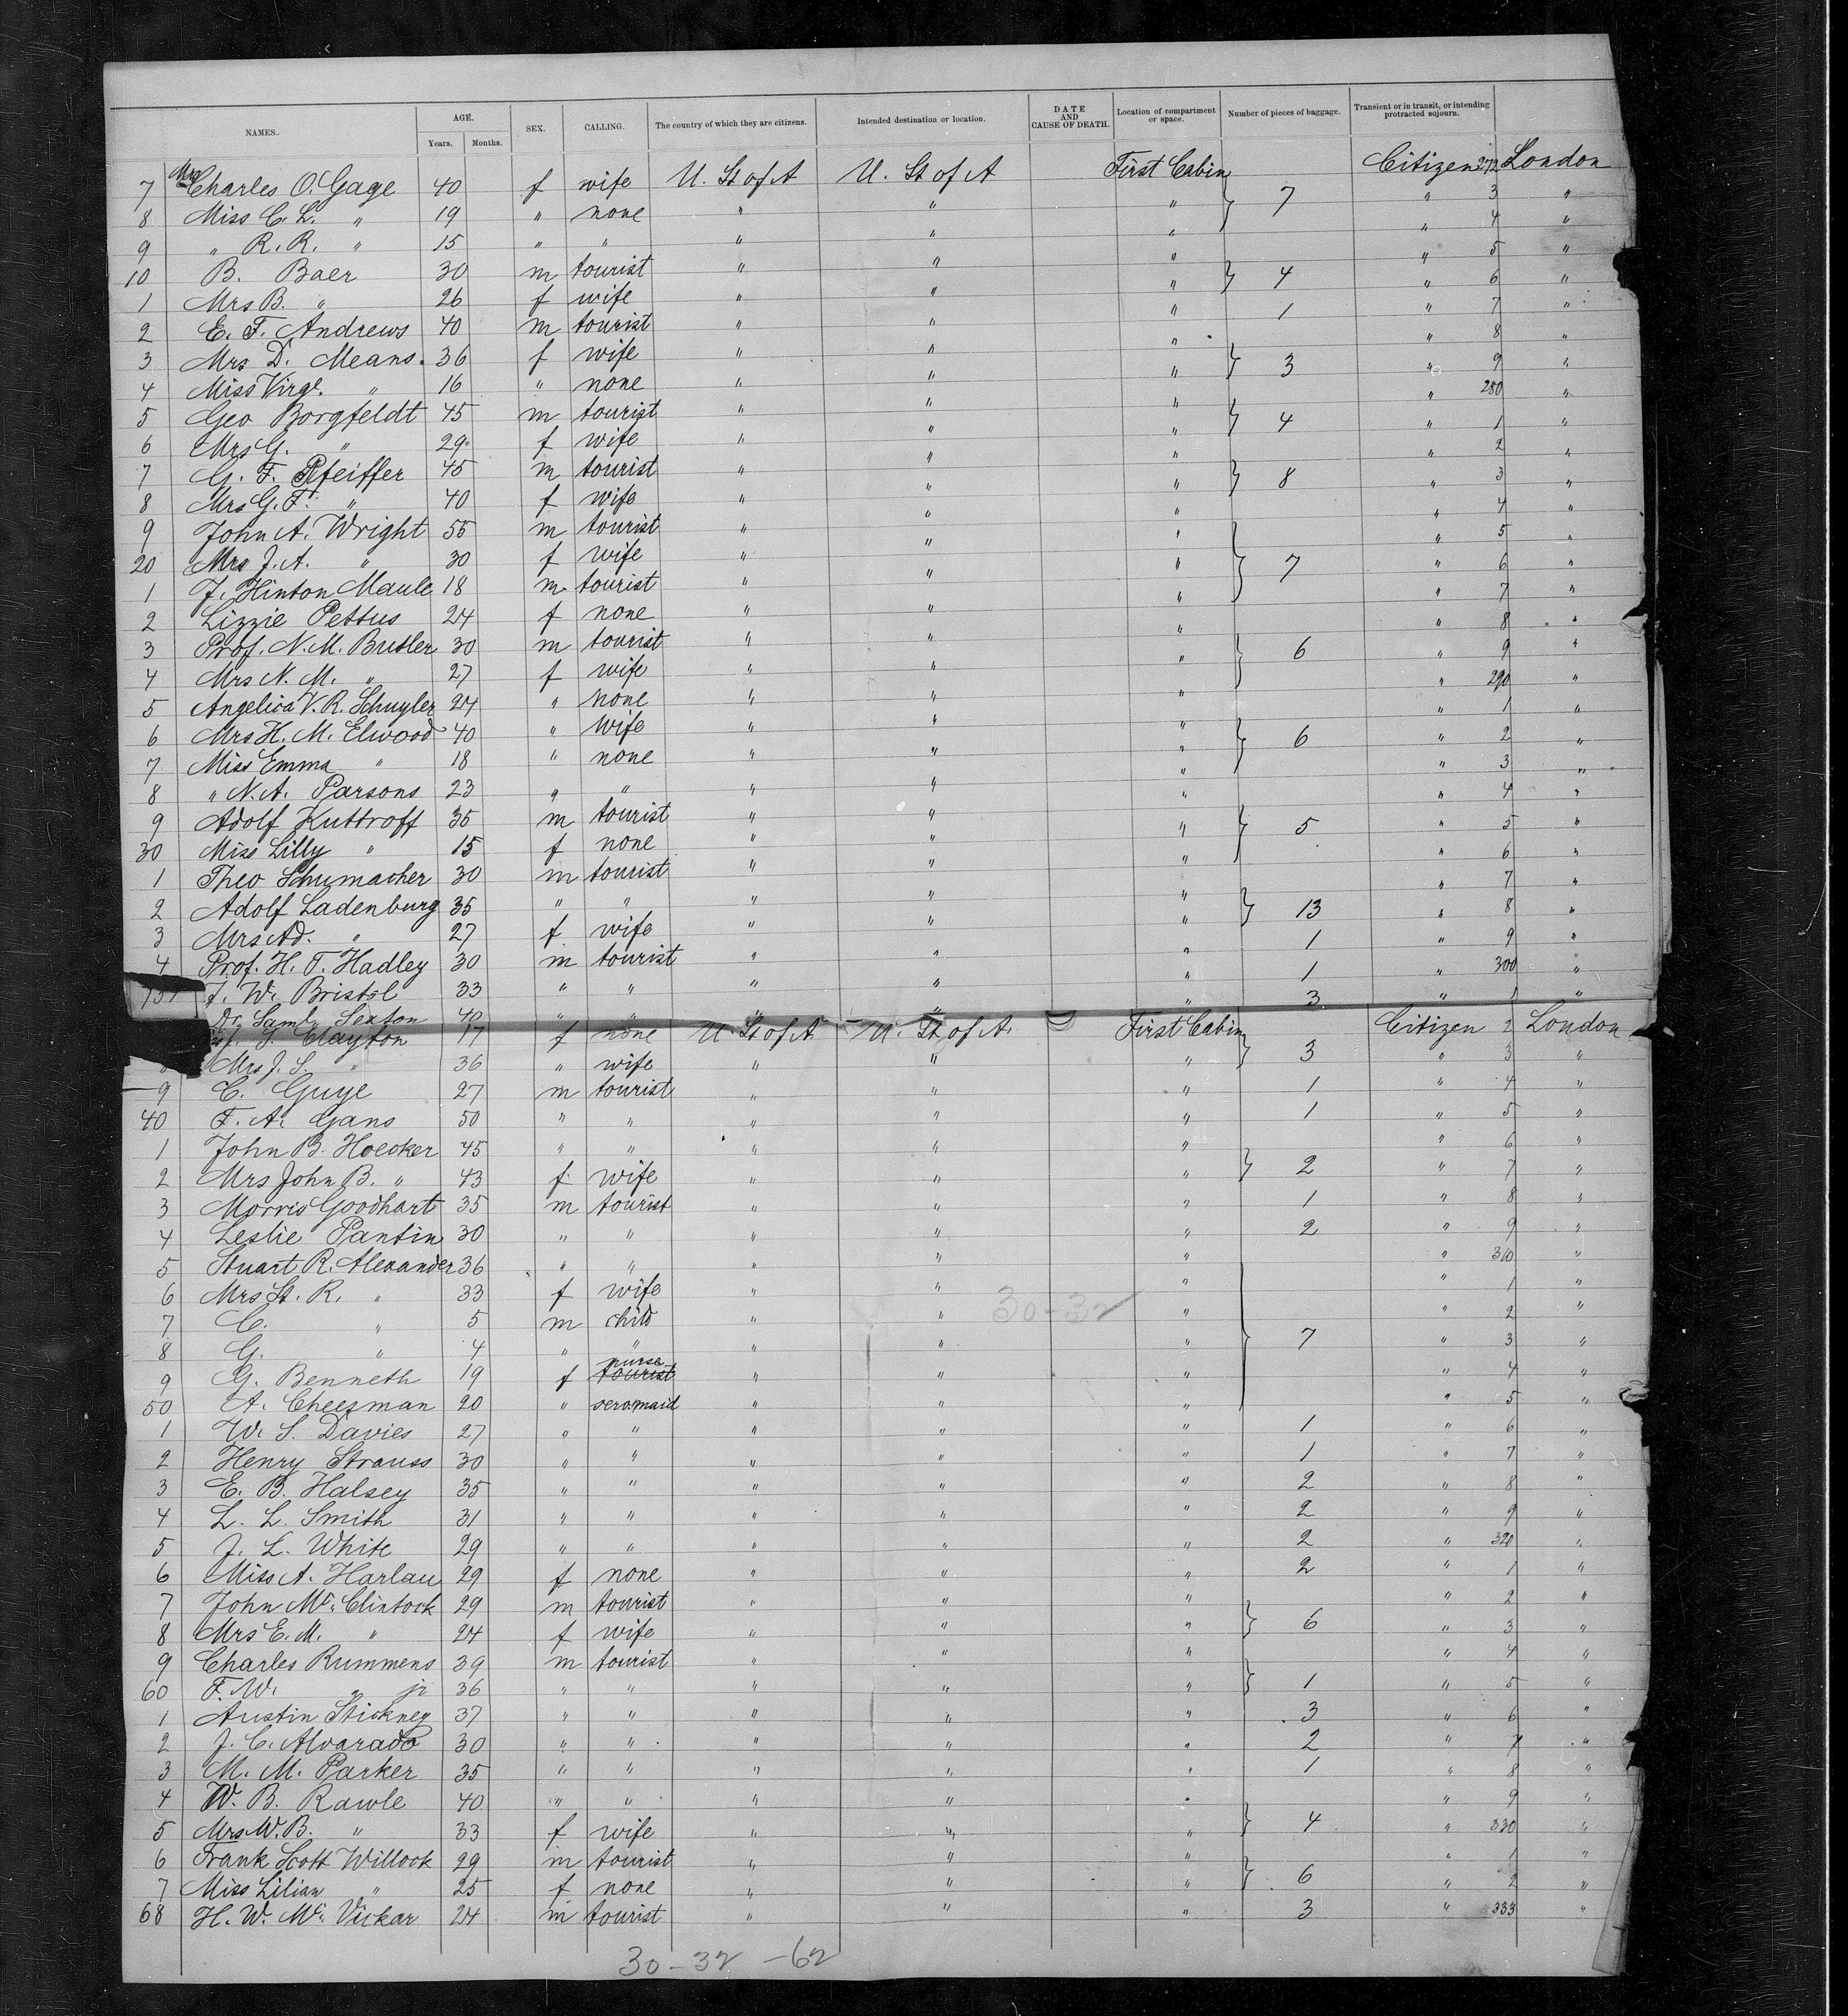 NAMES. AGE. Years. Months. SEX. CALLING. The country of which they are citizens. Intended destination or location. DATE AND CAUSE OF DEATH. Location of compartment or space. Number of pieces of baggage. Transient or in transit, or intending protracted sojourn.
7 Mrs Charles O. Gage 40 f wife U. St of A U. St of A First Cabin Citizen 272 London
8 Miss C. L. " 19 " none " " " 7 " 3 "
9 " R. R. " 15 " " " " " " 4 "
10 B. Baer 30 m tourist " " " " 5 "
1 Mrs B. " 26 f wife " " " 4 " 6 "
2 E. F. Andrews 40 m tourist " " " 1 " 7 "
3 Mrs D. Means. 36 f wife " " " " 8 "
4 Miss Virg. " 16 " none " " " 3 " 9 "
5 Geo Borgfeldt 45 m tourist " " " " 280 "
6 Mrs G. " 29 f wife " " " 4 " 1 "
7 G. F. Pfeiffer 45 m tourist " " " " 2 "
8 Mrs G. F. " 40 f wife " " " 8 " 3 "
9 John A. Wright 55 m tourist " " " " 4 "
20 Mrs J. A. " 30 f wife " " " " 5 "
1 J. Hinton Maule 18 m tourist " " " 7 " 6 "
2 Lizzie Pettus 24 f none " " " " 7 "
3 Prof. N. M. Butler 30 m tourist " " " " 8 "
4 Mrs N. M. " 27 f wife " " " 6 " 9 "
5 Angelica V. R. Schuyler 24 " none " " " " 290 "
6 Mrs H. M. Elwood 40 " wife " " " " 1 "
7 Miss Emma " 18 " none " " " 6 " 2 "
8 " N. A. Parsons 23 " " " " " " 3 "
9 Adolf Kuttroff 35 m tourist " " " " 4 "
30 Miss Lilly " 15 f none " " " 5 " 5 "
1 Theo Schumacher 30 m tourist " " " " 6 "
2 Adolf Ladenburg 35 " " " " " " 7 "
3 Mrs Ad. " 27 f wife " " " 13 " 8 "
4 Prof. H. T. Hadley 30 m tourist " " " 1 " 9 "
J. W. Bristol 33 " " " " " 1 " 300 "
Dr. Saml. Sexton 40 " " " " " 3 " 1 "
J. Clayton 17 f none U. St of A U. St of A. First Cabin Citizen 2 London
Mrs J. S. " 36 " wife " " " 3 " 3 "
9 C. Guye 27 m tourist " " " 1 " 4 "
40 F. A. Gans 50 " " " " " 1 " 5 "
1 John B. Hoecker 45 " " " " " " 6 "
2 Mrs John B. " 43 f wife " " " 2 " 7 "
3 Morris Goodhart 35 m tourist " " " 1 " 8 "
4 Leslie Pantin 30 " " " " " 2 " 9 "
5 Stuart R. Alexander 36 " " " " " " 310 "
6 Mrs St. R. " 33 f wife " " " " 1 "
7 C. " 5 m child " 30-32 " " " 2 "
8 G. " 4 " " " " " 7 " 3 "
9 G. Benneth 19 f nurse tourist " " " " 4 "
50 A. Cheesman 20 " servmaid " " " " 5 "
1 W. S. Davies 27 " " " " " 1 " 6 "
2 Henry Strauss 30 " " " " " 1 " 7 "
3 E. B. Halsey 35 " " " " " 2 " 8 "
4 L. L. Smith 31 " " " " " 2 " 9 "
5 J. L. White 29 " " " " " 2 " 320 "
6 Miss A. Harlau 29 f none " " " 2 " 1 "
7 John Mc. Clintock 29 m tourist " " " " 2 "
8 Mrs E. M. " 24 f wife " " " 6 " 3 "
9 Charles Rummens 39 m tourist " " " " 4 "
60 F. W. " jr 36 " " " " " 1 " 5 "
1 Austin Stickney 37 " " " " " 3 " 6 "
2 J. C. Alvarado 30 " " " " " 2 " 7 "
3 M. M. Parker 35 " " " " " 1 " 8 "
4 W. B. Rawle 40 " " " " " " 9 "
5 Mrs W. B. " 33 f wife " " " 4 " 330 "
6 Frank Scott Willock 29 m tourist " " " " 1 "
7 Miss Lilian " 25 f none " " " 6 " 2 "
68 H. W. Mc. Vickar 24 m tourist " " " 3 " 333 "
30-32 -62